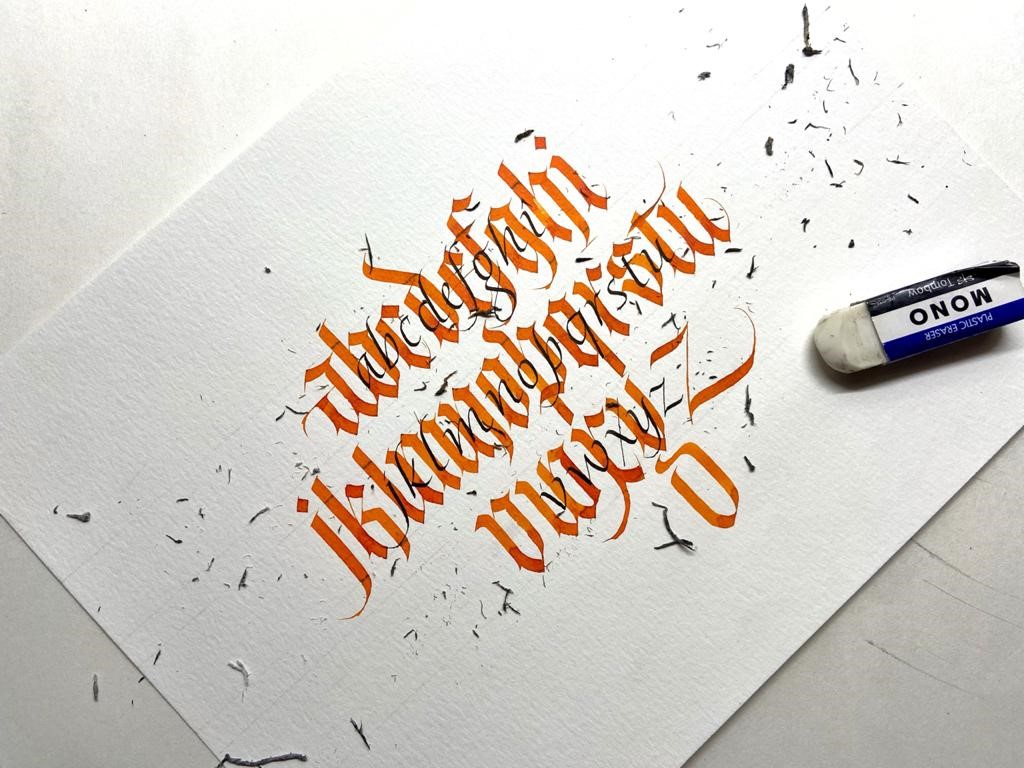 abcdefghi
abcdefghi
jklmnopqrstu
jklmnopqrstu
vwxyz
vwxyz
PLASTIC ERASER
MONO
Tombow